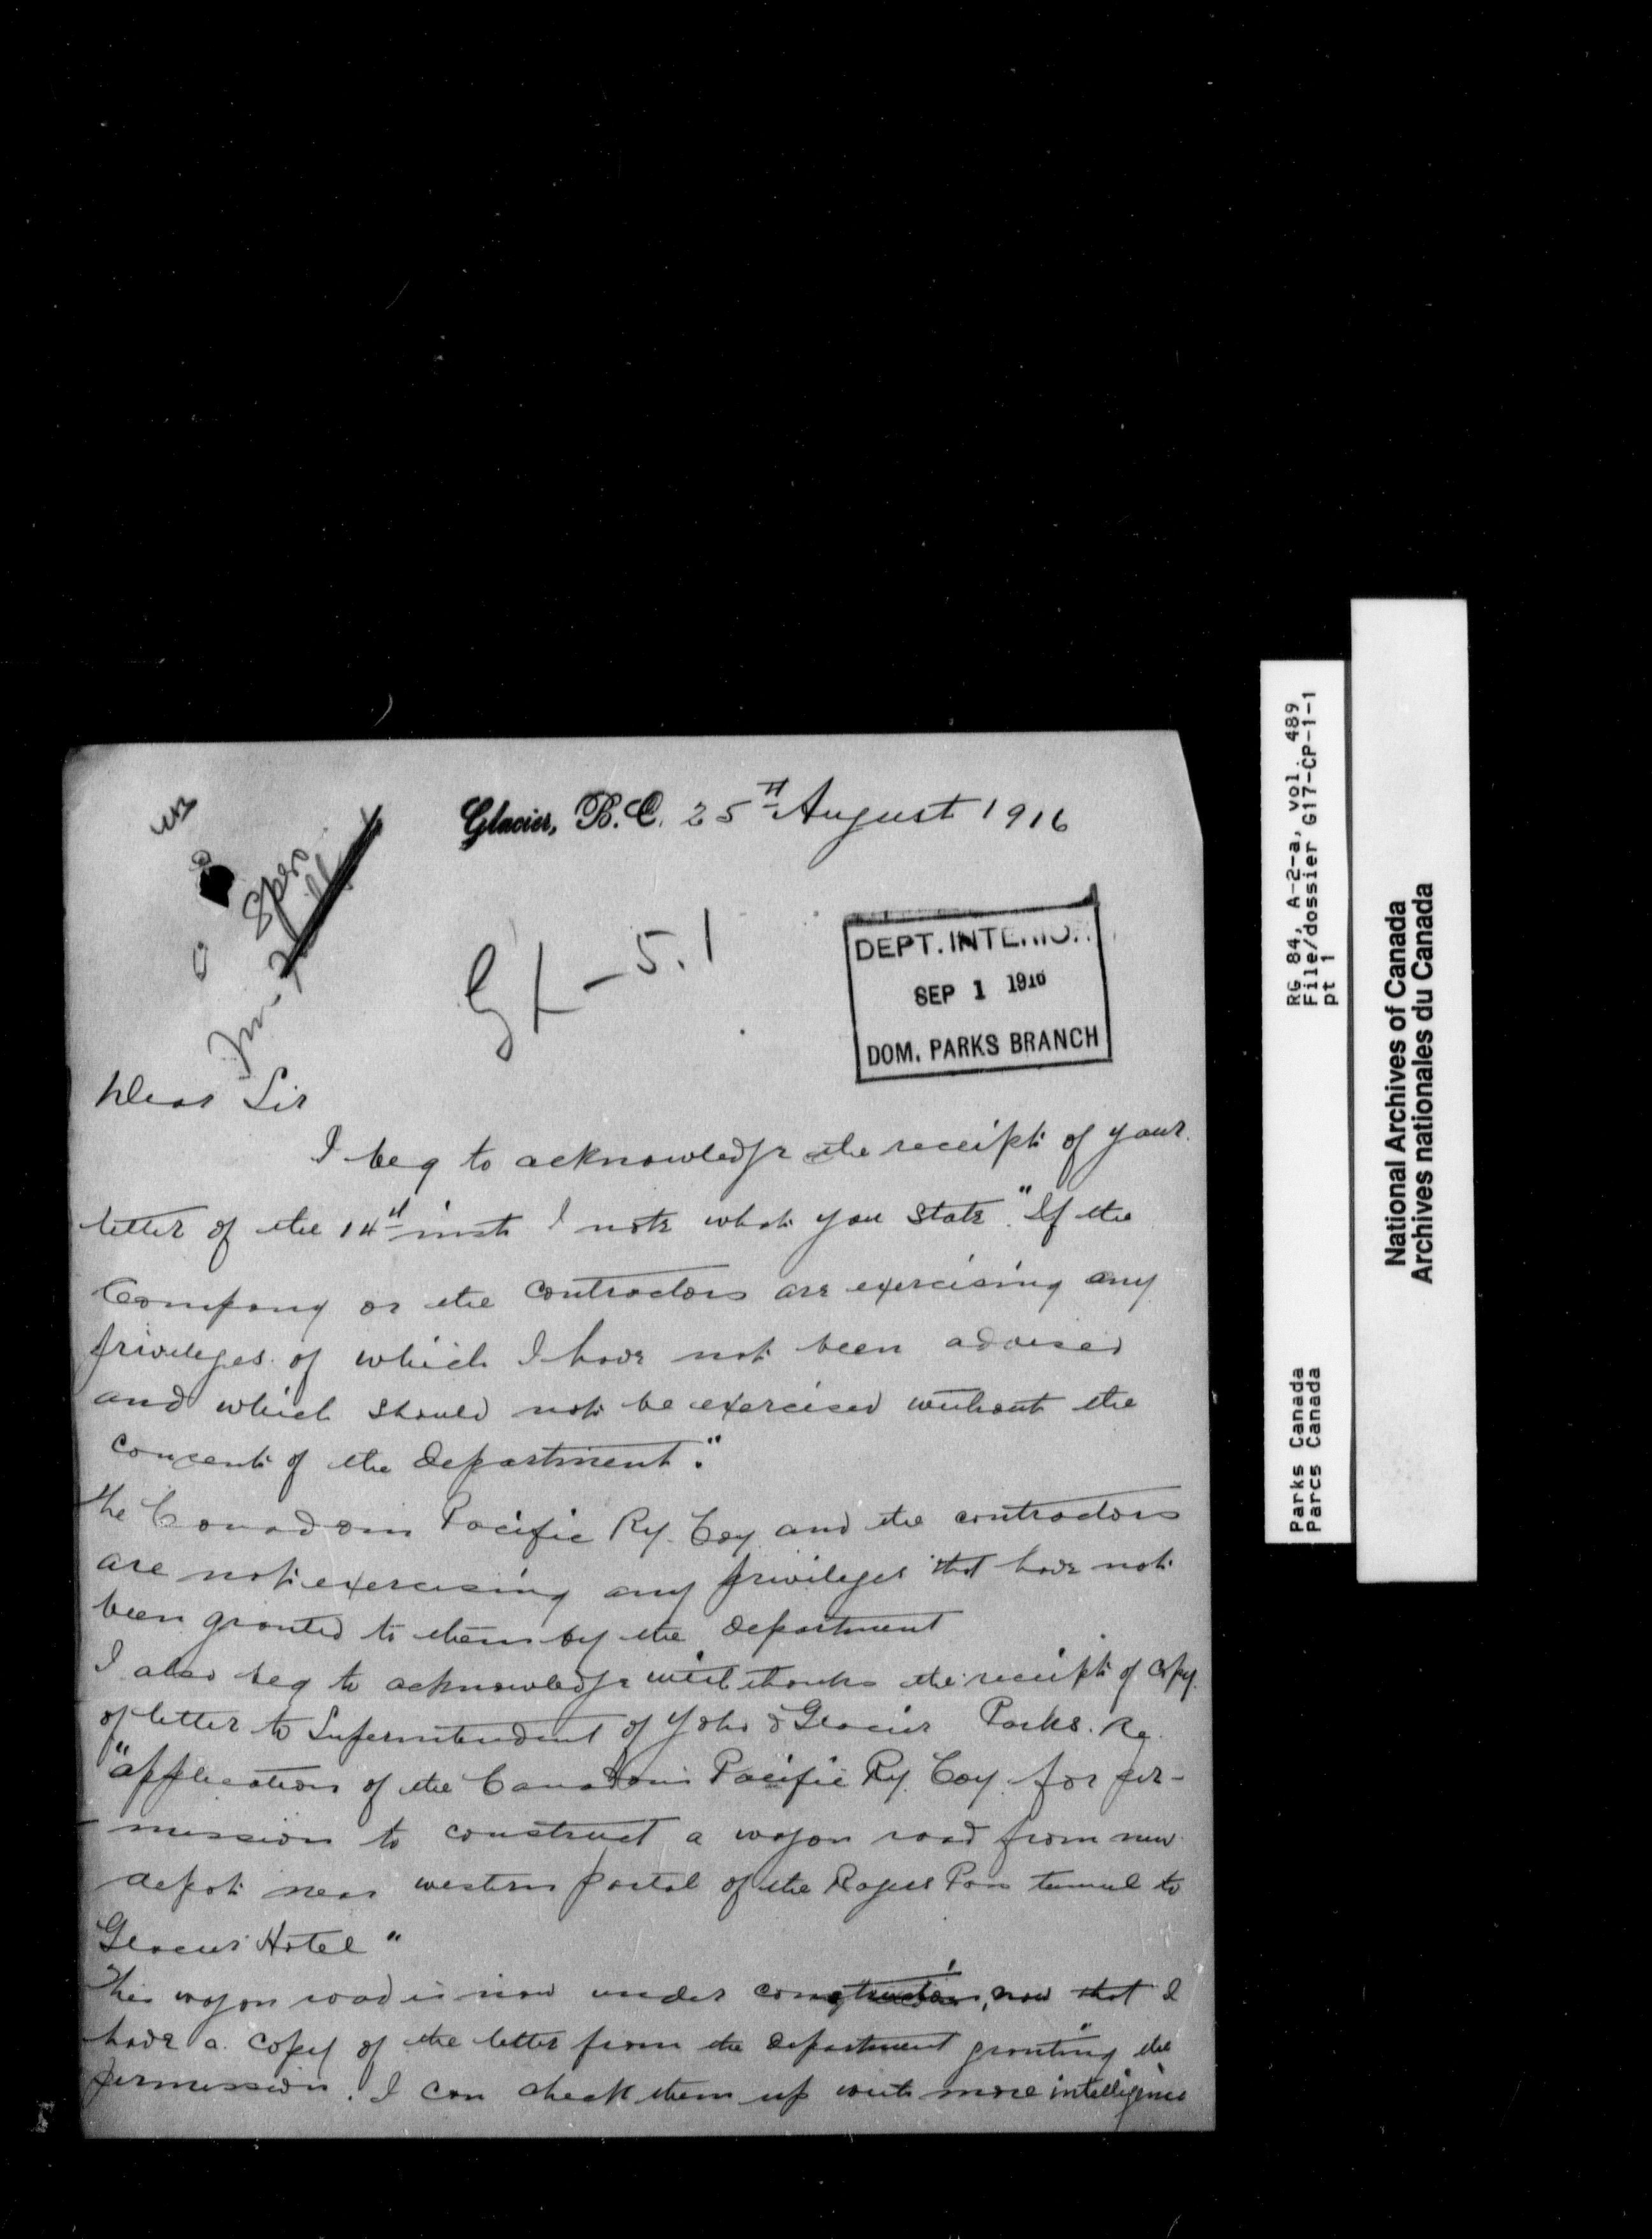 Glacier, B.C. 25th August 1916
GL-5.1
DEPT. INTERIOR
SEP 1 1916
DOM. PARKS BRANCH
Dear Sir
I beg to acknowledge the receipt of your
letter of the 14th inst I note what you state "If the
Company or the contractors are exercising any
privileges of which I have not been advised
and which should not be exercised without the
concent of the department."
The Canadian Pacific Ry. Coy and the contractors
are not exercising any privileges that have not
been granted to them by the department
I also beg to acknowledge with thanks the receipt of copy
of letter to Superintendent of Yoho & Glacier Parks. Re.
"application of the Canadian Pacific Ry. Coy. for per-
-mission to construct a wagon road from new
depot near western portal of the Rogers Pass tunnel to
Glacier Hotel"
This wagon road is now under construction, now that I
have a copy of the letter from the department granting the
permission. I can check them up with more intelligence
RG 84, A-2-a, vol. 489
File/dossier G17-CP-1-1
pt 1
Parks Canada
Parcs Canada
National Archives of Canada
Archives nationales du Canada